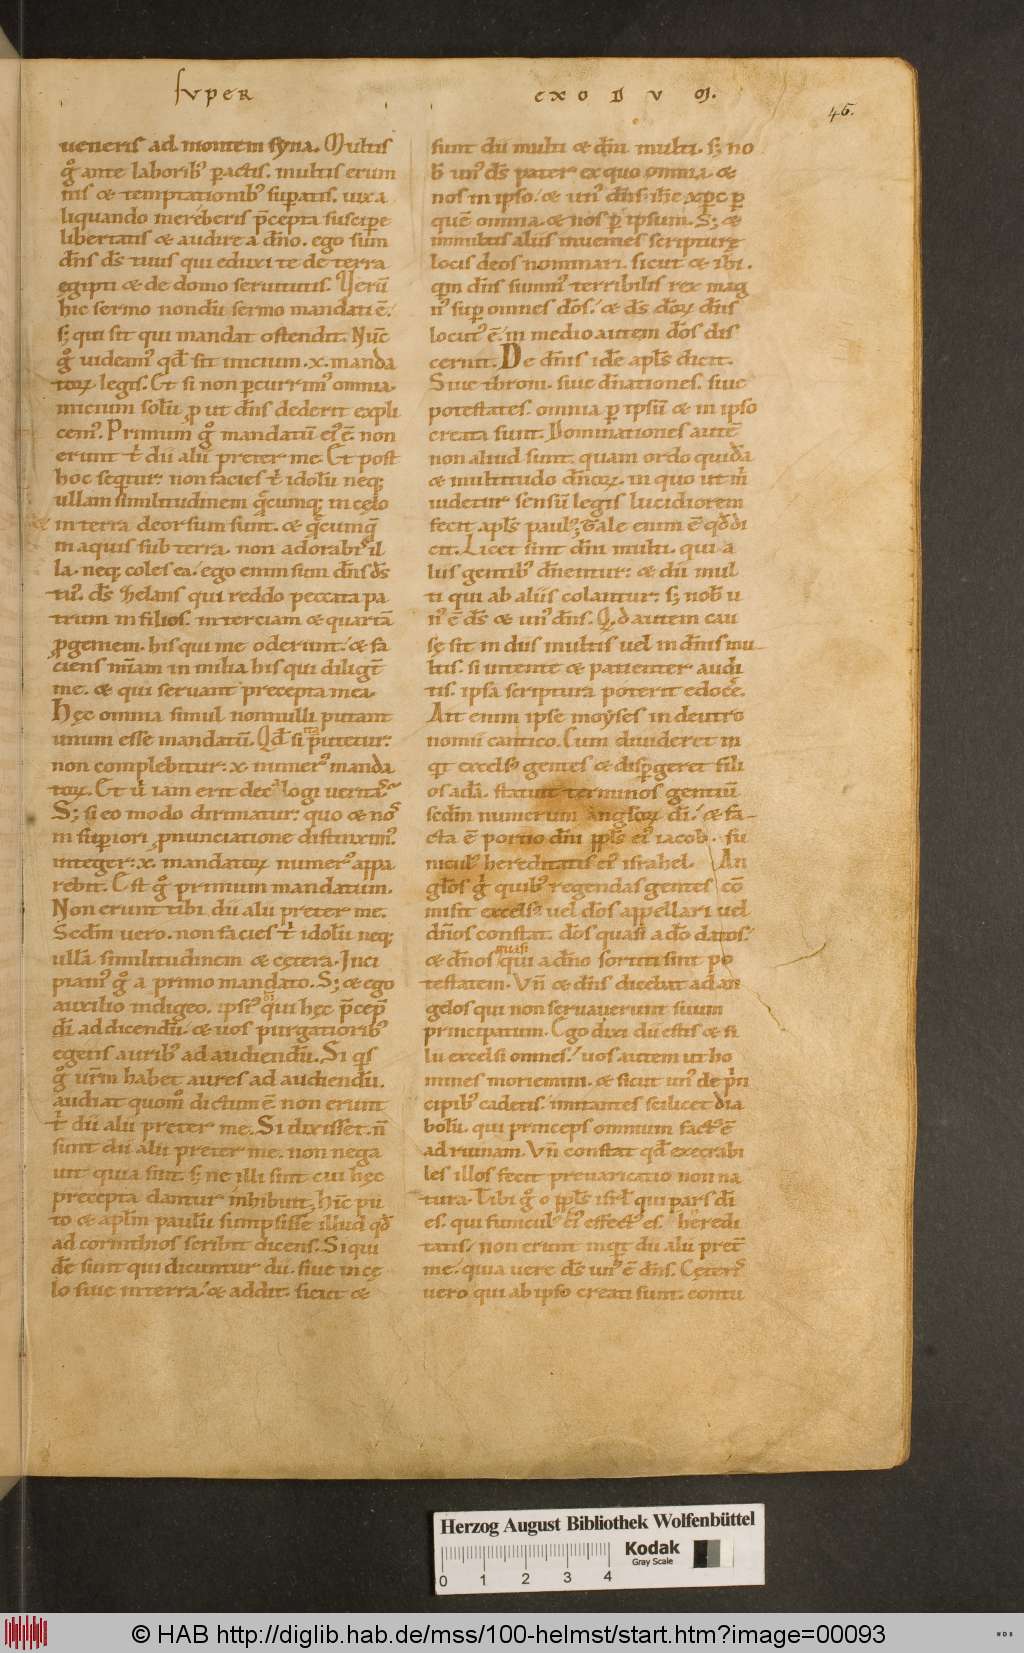 SVPER
EXODVM.
45.
ueneris ad montem syna. Multis
gͦ ante laborib; p̱actis. multis erum
nis & temptationib; sup̱atis. uix a
liquando mereberis p̄cepta suscipe
libertatis & audire a dn̄o. ego sum
dn̄s ds̄ tuus qui eduxi te de terra
egipti & de domo seruitutis. Verū
hic sermo nondū sermo mandati ē.
s; qui sit qui mandat ostendit. Nūc
gͦ uideam᷒ qd̄ sit inicium .x. manda
toꝝ legis. Et si non ꝑcurrim᷒ omnia.
inicium soltū ꝓut dn̄s dederit expli
cem᷒. Primum gͦ mandatū ei᷒ ē. non
erunt t̄ dii alii preter me. Et post
hoc seqͥtur: non facies t̄ idolū neq;
ullam similitudinem q̄cumq; in cęlo
in terra deorsum sunt. & q̄cumq̄
in aquis sub terra. non adorabis il
la. neq; coles ea. ego enim sum dn̄s ds̄
tu᷒. ds̄ zelans qui reddo peccata pa
trum in filios. in terciam & quartā
ꝓgeniem. his qui me oderunt. & fa
ciens mīam in milia his qui diligt̄
me. & qui seruant precepta mea.
Hęc omnia simul nonnulli putant
unum esse mandatū. Qd̄ si ita putetur:
non complebitur: .x. numer᷒ manda
toꝝ. Et u iam erit decalogi ueritas.
S; si eo modo dirimatur: quo & nos
in superiori ꝓnunciatione distinxim᷒.
integer: .x. mandatoꝝ numer᷒ appa
rebit. Est gͦ primum mandatum.
Non erunt tibi dii alii preter me.
Secdm̄ uero. non facies t̄ idolū neq;
ullā similitudinem & cętera. Inci
piam᷒ gͦ a primo mandato. S; & ego
auxilio indigeo. ipsi᷒ qui hęc p̄cep̄
di ad dicendū. & uos purgatiorib;
egetis aurib; ad audiendū. Si qͥs
gͦ ur̄m habet aures ad audiendū.
audiat quomͦ dictum ē. non erunt
t̄ dii alii preter me. Si dixisset. ñ
sunt dii alii preter me. non nega
uit quia sint. s; ne illi sint cui hęc
precepta dantur inhibuit. Hīc pu
to & aplm̄ paulū sumpsisse illud qd̄
ad corinthios scribit dicens. Si qui
dē sunt qui dicuntur dii. siue in cę
lo siue in terra. & addit. sicut &
sunt dii multi & dn̄i multi. s; no
b̄ un᷒ ds̄ pater ex quo omnia. &
nos in ipso. & un᷒ dn̄s ih̄c xp̄c ꝑ
quē omnia. & nos ꝑ ipsum. S; &
in multis aliis inuenies scripturę
locis deos nominari. sicut & ibi.
qm̄ dn̄s summ᷒ terribilis rex mag
n᷒ sup̱ omnes dōs. & ds̄ doꝝ dn̄s
locut᷒ ē. in medio autem dōs dis
cernit. De dn̄is idē apls̄ dicit.
Siue throni. siue dn̄ationes. siue
potestates. omnia ꝑ ipsū & in ipso
creata sunt. Dominationes autē
non aliud sunt. quam ordo quidā
& multitudo dn̄oꝝ. in quo ut m̄
uidetur sensū legis lucidiorem
fecit apls̄ paul᷒; Tale enim ē qd̄ di
cit. Licet sint dn̄i multi. qui a
liis gentib; dn̄entur: & dii mul
ti qui ab aliis colantur: s; nob̄ u
n᷒ ē ds̄ & un᷒ dn̄s. Qd autem cau
sę sit in diis multis uel in dn̄is mu
ltis. si intente & patienter audi
tis. ipsa scriptura poterit edoce͛.
Ait enim ipse moyses in deutro
nomii cantico. Cum diuideret in
qͥt excels᷒ gentes & disꝑgeret fili
os adā. statuit terminos gentiū
secdm̄ numerum angloꝝ di. & fa-
cta ē portio dn̄i ppls̄ ei᷒ iacob. fu
nicul᷒ hereditatis ei᷒ israhel. An
glōs gͥ quib; regendas gentes cō
misit excels᷒ uel dōs appellari uel
dn̄os constat. dōs quasi a dō datos.
& dn̄os quasi qui a dn̄o sortiti sint po
testatem. Vn̄ & dn̄s dicebat ad an
gelos qui non seruauerunt suum
principatum. Ego dixi dii estis & fi
lii excelsi omnes. uos autem ut ho
mines moriemini. & sicut un᷒ de prin
cipib; cadetis. imitantes scilicet dia
bolū. qui princeps omnium fact᷒ ē
ad ruinam. Vn̄ constat qd̄ execrabi
les illos fecit preuaricatio non na
tura. Tibi gͦ o ppls̄ isrl̄ qui pars di
es. qui funicul᷒ ei᷒ effect᷒ es. heredi
tatis. non erunt inqͥt dii alii pret̄
me. quia uere ds̄ un᷒ ē dn̄s. Cęteri
uero qui ab ipso creati sunt. contu
Herzog August Bibliothek Wolfenbüttel
Kodak
Gray Scale
0 1 2 3 4
© HAB http://diglib.hab.de/mss/100-helmst/start.htm?image=00093